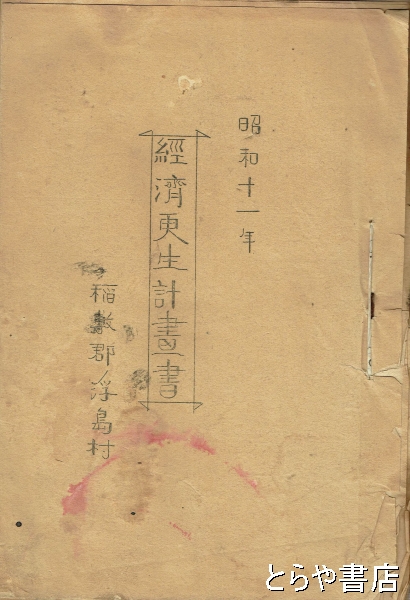 昭和十一年
經濟更生計畫書
稲敷郡浮島村
とらや書店